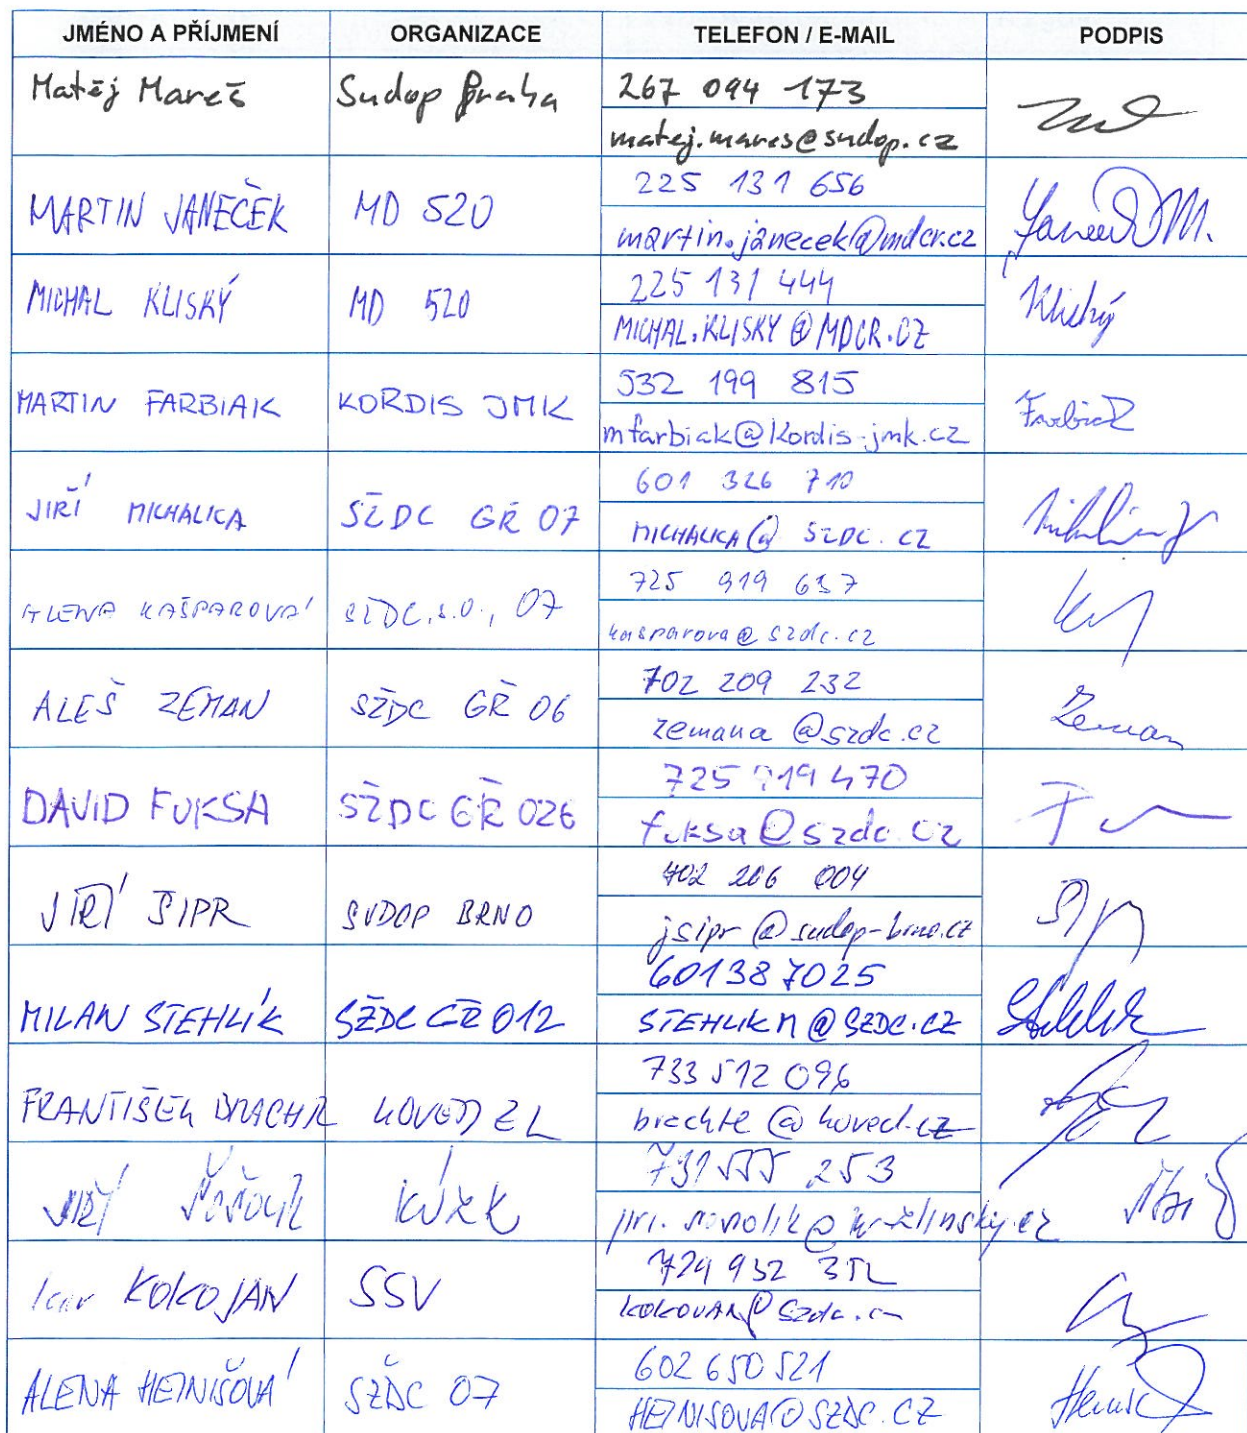 JMÉNO A PŘÍJMENÍ ORGANIZACE TELEFON / E-MAIL PODPIS
Matěj Mareš Sudop Praha 267 094 173
matej.mares@sudop.cz
MARTIN JANEČEK MD 520 225 131 656
martin.janecek@mdcr.cz
MICHAL KLISKÝ MD 520 225 131 444 Kliský
MICHAL.KLISKY@MDCR.CZ
MARTIN FARBIAK KORDIS JMK 532 199 815 Farbiak
mfarbiak@kordis-jmk.cz
JIŘÍ MICHALICA SŽDC GŘ 07 601 326 710
MICHALICA@SZDC.CZ
ALENA KAŠPAROVÁ SŽDC, s.o., 07 725 919 637
kasparova@szdc.cz
ALEŠ ZEMAN SŽDC GŘ 06 702 209 232 Zeman
zemana@szdc.cz
DAVID FUKSA SŽDC GŘ 026 725 919 470
fuksa@szdc.cz
JIŘÍ ŠIPR SUDOP BRNO 702 206 004
jsipr@sudop-brno.cz
MILAN STEHLÍK SŽDC GŘ 012 601387025 Stehlík
STEHLIKM@SZDC.CZ
FRANTIŠEK KOVED ZL 733 512 096
brachtl@koved.cz
JIŘÍ KÚZK 731 555 253
Igor KOKOJAN SSV 724 932 312
ALENA HEJNIŠOVÁ SŽDC 07 602 650 521
HEJNISOVA@SZDC.CZ